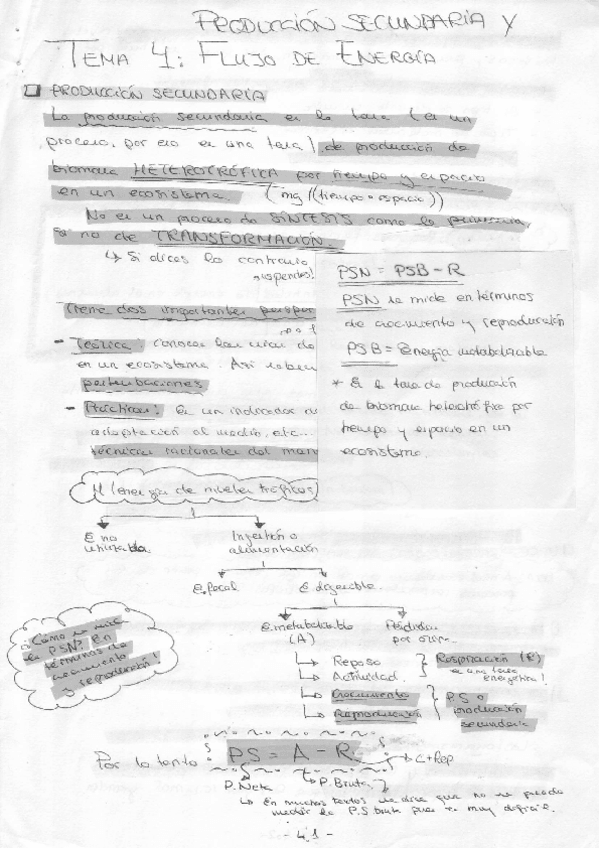 PRODUCCIÓN SECUNDARIA Y
TEMA 4: FLUJO DE ENERGÍA
PRODUCCIÓN SECUNDARIA
La producción secundaria es la tasa (es un
proceso, por eso es una tasa) de producción de
biomasa HETEROTRÓFICA por tiempo y espacio
en un ecosistema. (mg/(tiempo · espacio))
No es un proceso de SÍNTESIS como la primaria,
si no de TRANSFORMACIÓN.
↳ Si dices lo contrario
suspendes!
PSN = PSB - R
PSN se mide en términos
de crecimiento y reproducción
PSB = Energía metabolizable
* Es la tasa de producción
de biomasa heterotrófica por
tiempo y espacio en un
ecosistema.
Tiene dos importantes
- Teórica: conocer
en un ecosistema. Así
perturbaciones
- Práctica: Es un indicador
adaptación al medio, etc...
técnicas racionales del
(Energía de niveles tróficos)
E no
utilizada
Ingestión o
alimentación
E.fecal
E.digerible
E.metabolizable
(A)
Pérdidas
por
↳ Reposo
↳ Actividad.
} Respiración (R)
es una tasa
energética!
↳ Crecimiento
↳ Reproducción
} P.S o
producción
secundaria
¿Cómo se mide
la PSN? En
términos de
crecimiento
y reproducción!
Por lo tanto PS = A - R → C + Rep
P.Neta
P.Bruta
↳ En muchos textos se dice que no se puede
medir la P.S.bruta pues es muy difícil.
- 4.1 -